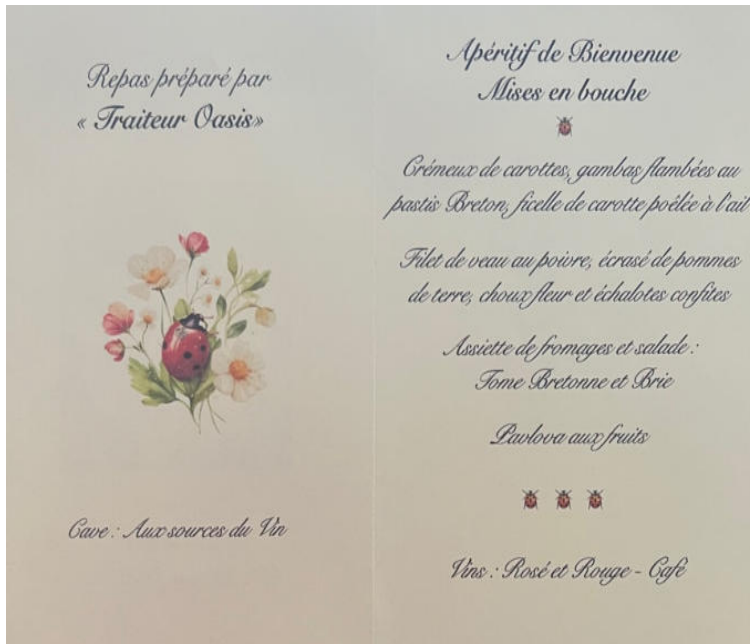 Repas préparé par
« Traiteur Oasis»
Cave : Aux sources du Vin
Apéritif de Bienvenue
Mises en bouche
Crémeux de carottes, gambas flambées au
pastis Breton, ficelle de carotte poêlée à l'ail
Filet de veau au poivre, écrasé de pommes
de terre, choux fleur et échalotes confites
Assiette de fromages et salade :
Tome Bretonne et Brie
Pavlova aux fruits
Vins : Rosé et Rouge - Café